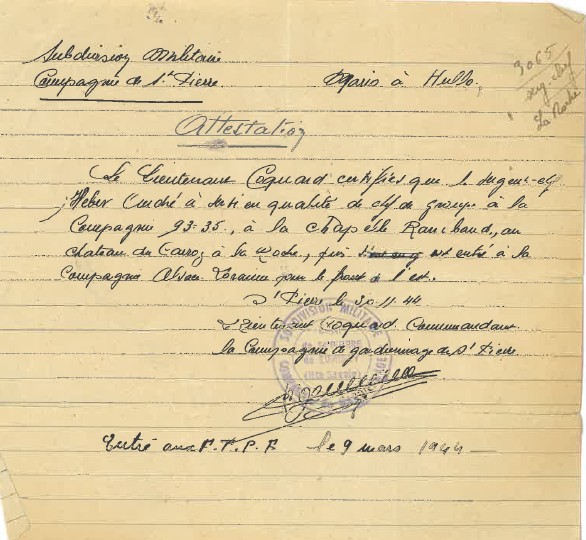 Subdivision Militaire
Compagnie de St Pierre
3065
La Roche
Attestation
Le Lieutenant Coquard certifies que l. sergent-chef
Heber André à servi en qualité de chef de groupe à la
Compagnie 93-35, à la chapelle Rambaud, au
chateau du à la Roche, puis est entré à la
Compagnie Alsace Loraine pour le front de l'est.
St Pierre le 30.11.44
Lieutenant Coquard Commandant
la Compagnie de gardiennage de St Pierre
SUBDIVISION MILITAIRE
Entré aux F.T.P.F le 9 mars 1944